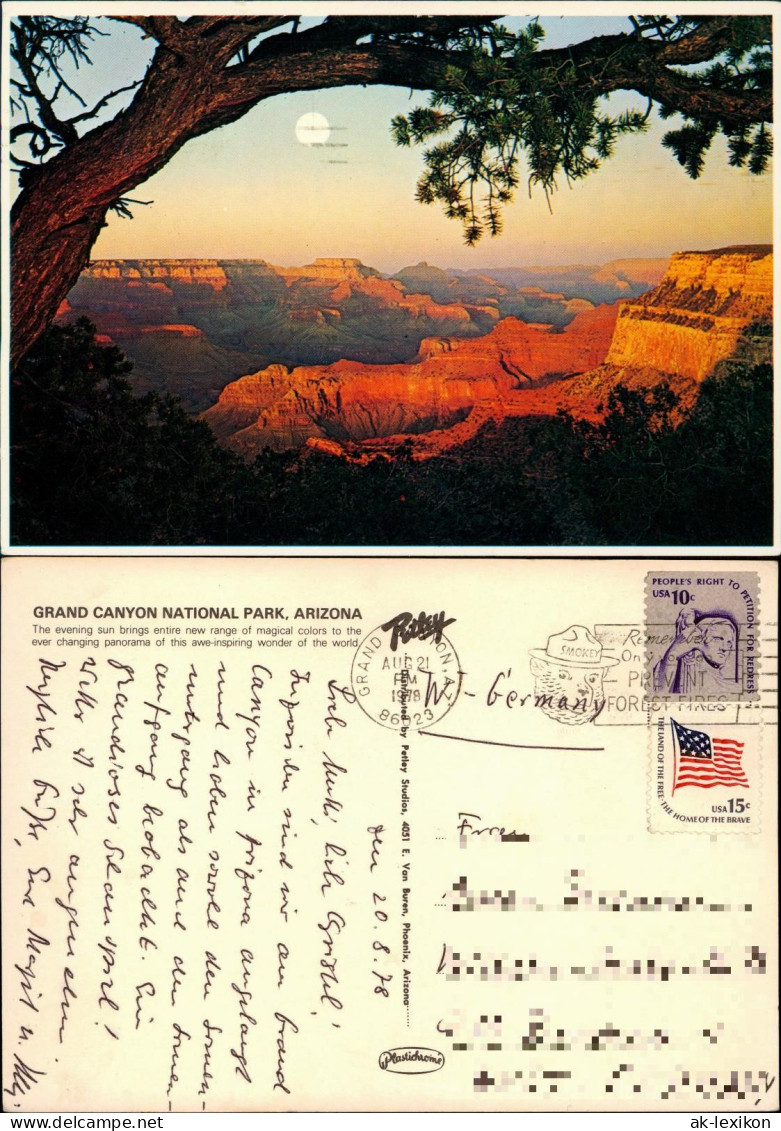 GRAND CANYON NATIONAL PARK, ARIZONA
The evening sun brings entire new range of magical colors to the
ever changing panorama of this awe-inspiring wonder of the world
Petley
GRAND CANYON, AZ
AUG 21
PM
1978
86023
SMOKEY
Remember
Only you can
PREVENT
FOREST FIRES
PEOPLE'S RIGHT TO PETITION FOR REDRESS
USA 10c
THE LAND OF THE FREE
THE HOME OF THE BRAVE
USA 15c
W-Germany
Distributed by Petley Studios, 4051 E. Van Buren, Phoenix, Arizona
Plastichrome
den 20.8.78
liebe
sind wir am Grand
Canyon in Arizona angelangt
und haben sowohl den Sonnen-
untergang als auch den Sonnen-
aufgang beobachtet. Ein
grandioses Schauspiel!
sehr angenehm.
Herzliche Grüße, Eure Margit u.
ak-lexikon